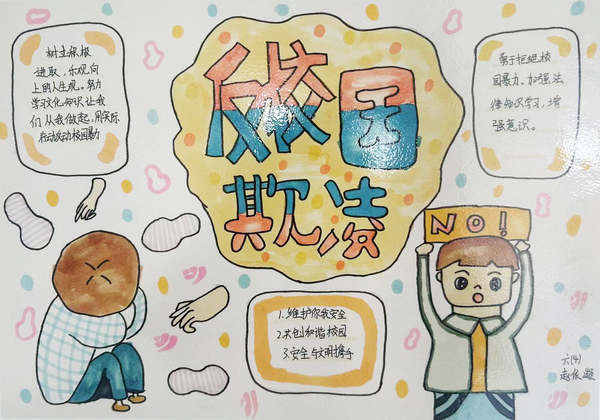 反校园
欺凌
树立积极
进取，乐观向
上的人生观。努力
学习文化知识让我
们从我做起，用实际
行动反动校园暴力
勇于拒绝校
园暴力。加强法
律知识学习，增
强意识。
NO!
1.维护你我安全
2.共创和谐校园
3.安全与文明携手
六(4)